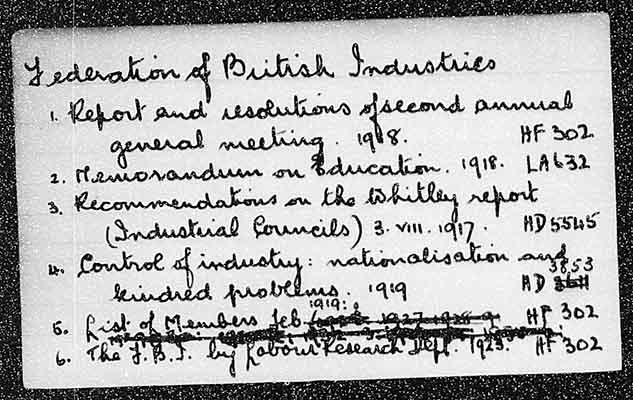 Federation of British Industries
1. Report and resolutions of second annual
general meeting. 1918. HF 302
2. Memorandum on Education. 1918. LA 632
3. Recommendations on the Whitley report
(Industrial Councils) 3.VIII.1917. HD 5545
4. Control of industry: nationalisation and
kindred problems. 1919 HD 3853
5. List of Members Feb 1919: HF 302
6. The F.B.I. by Labour Research Dept. 1923. HF 302